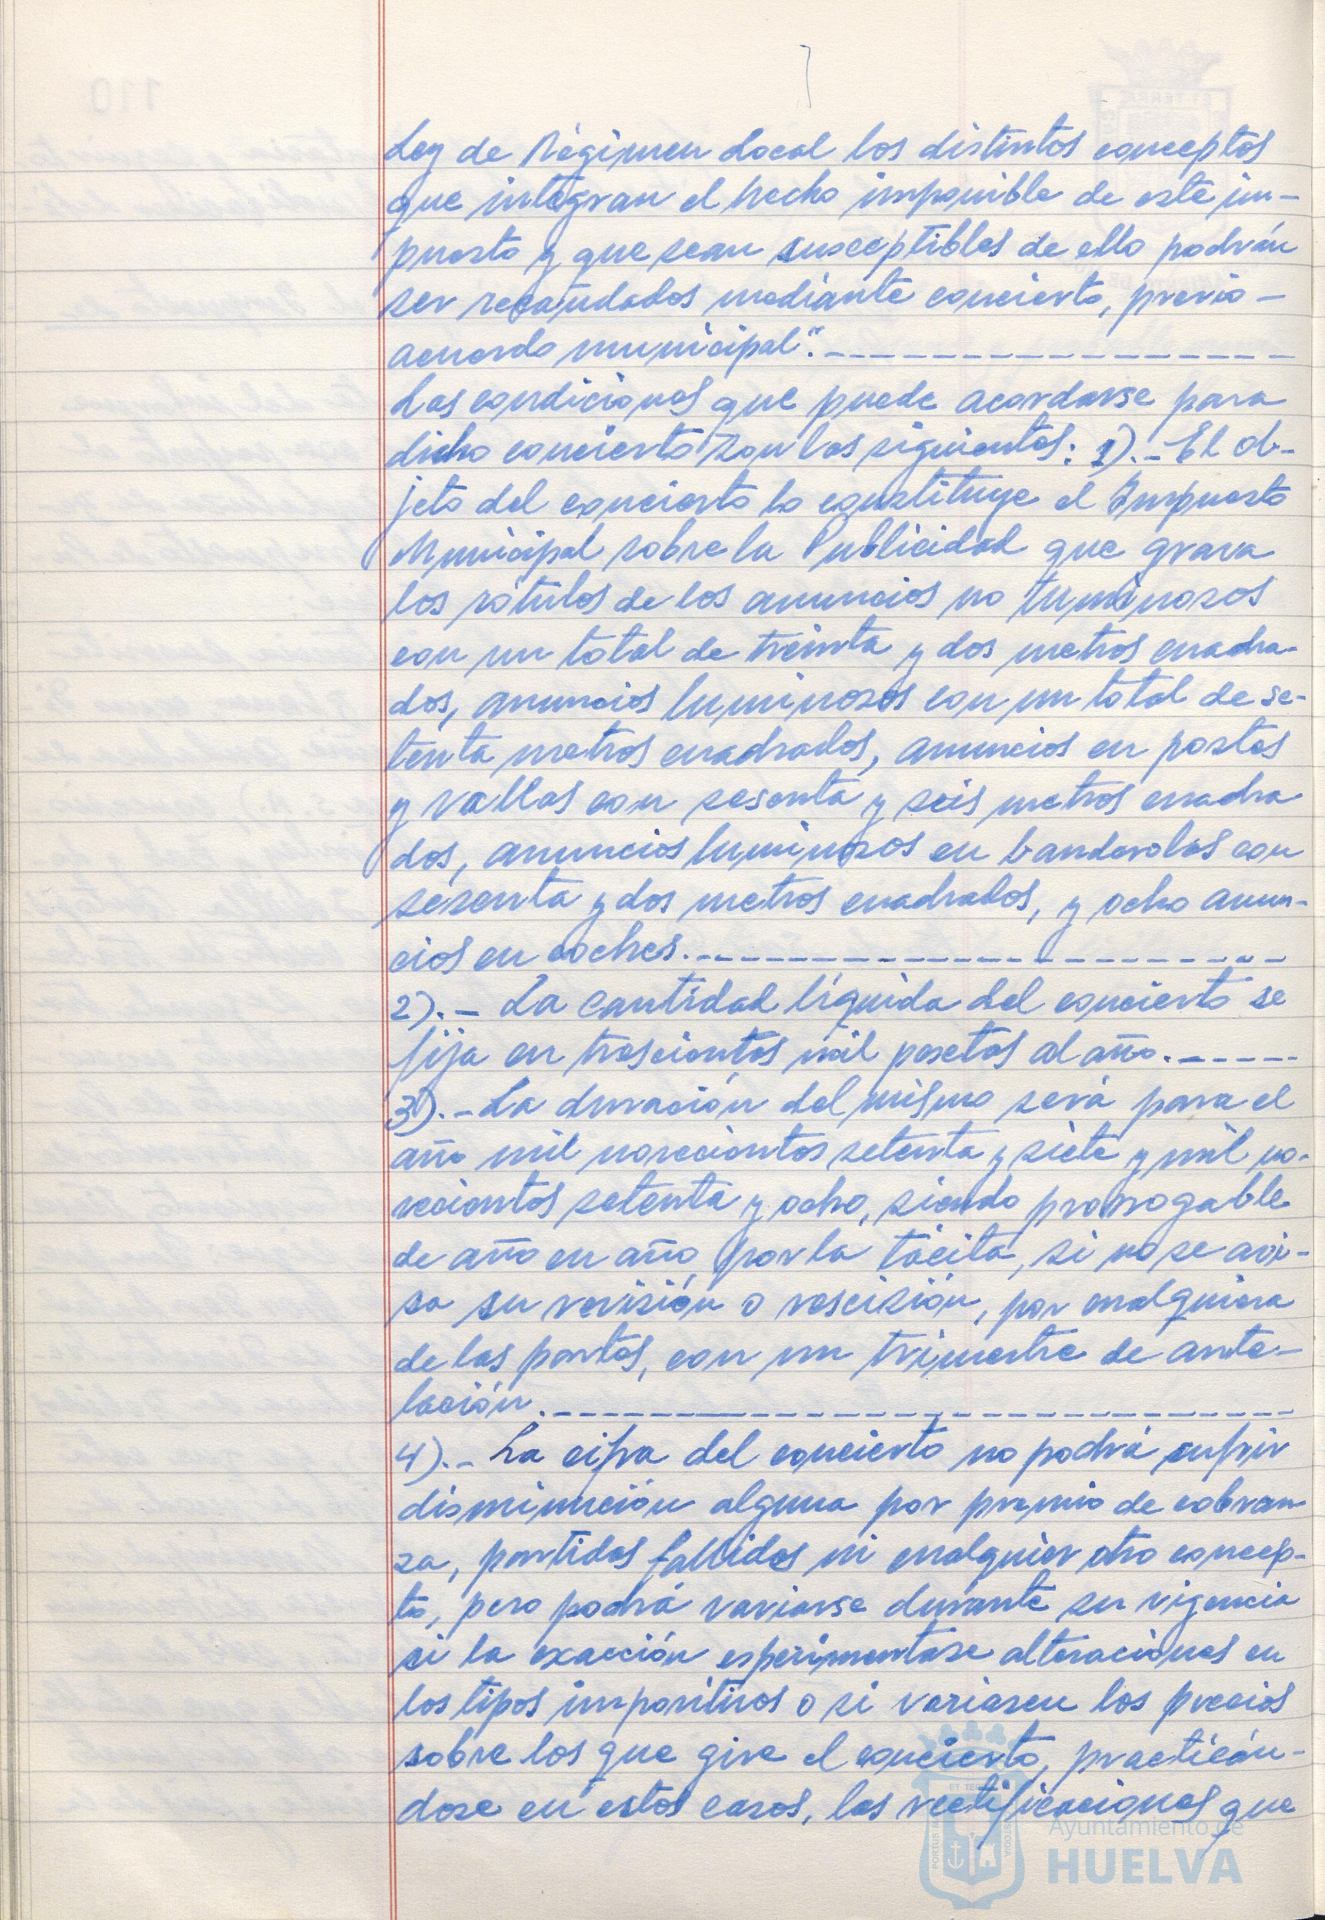 Ley de Régimen Local los distintos conceptos
que integran el hecho imponible de este im-
puesto y que sean susceptibles de ello podrán
ser recaudados mediante concierto, previo
acuerdo municipal".
Las condiciones que puede acordarse para
dicho concierto son las siguientes: 1).- El ob-
jeto del concierto lo constituye el Impuesto
Municipal sobre la Publicidad que grava
los rótulos de los anuncios no luminosos
con un total de treinta y dos metros cuadra-
dos, anuncios luminosos con un total de se-
tenta metros cuadrados, anuncios en postes
y vallas con sesenta y seis metros cuadra
dos, anuncios luminosos en banderolas con
sesenta y dos metros cuadrados, y ocho anun-
cios en coches.
2).- La cantidad líquida del concierto se
fija en trescientas mil pesetas al año.
3).- La duración del mismo será para el
año mil novecientos setenta y siete y mil no-
vecientos setenta y ocho, siendo prorrogable
de año en año por la tácita, si no se avi-
sa su revisión o rescisión, por cualquiera
de las partes, con un trimestre de ante-
lación.
4).- La cifra del concierto no podrá sufrir
disminución alguna por premio de cobran-
za, partidas fallidas ni cualquier otro concep-
to, pero podrá variarse durante su vigencia
si la exacción esperimentase alteraciones en
los tipos impositivos o si variasen los precios
sobre los que gire el concierto, practicán-
dose en estos casos, las rectificaciones que
Ayuntamiento de
HUELVA